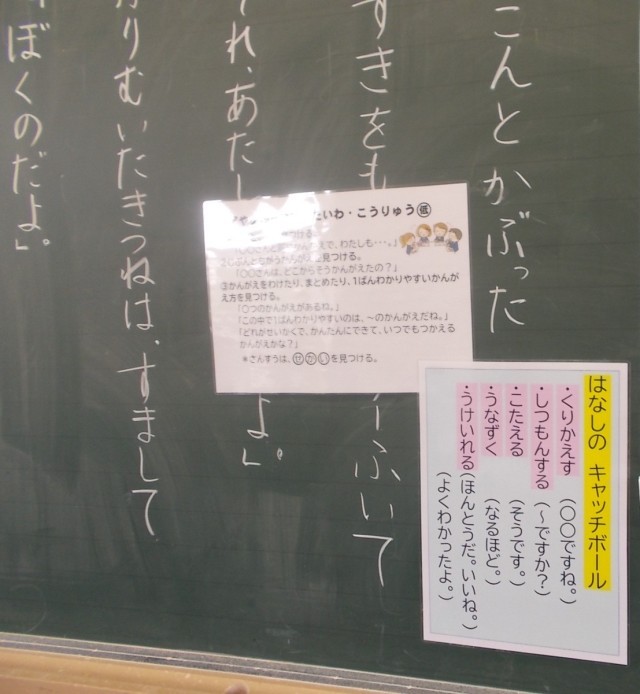 こんとかぶった
すきをも
ーふいて
れ、あたし
よ」。
かりむいたきつねは、すまして
ぼくのだよ」。
たいわ・こうりゅう㊦
つける。
かんがえで、わたしも・・・。」
ちがうかんがえを見つける。
「〇〇さんは、どこからそうかんがえたの？」
③かんがえをわけたり、まとめたり、1ばんわかりやすいかんが
え方を見つける。
「〇つのかんがえがあるね。」
「この中で1ばんわかりやすいのは、～のかんがえだね。」
「どれがせいかくで、かんたんにできて、いつでもつかえる
かんがえかな？」
＊さんすうは、せかいを見つける。
はなしの キャッチボール
・くりかえす （〇〇ですね。）
・しつもんする （～ですか？）
・こたえる （そうです。）
・うなずく （なるほど。）
・うけいれる （ほんとうだ。いいね。）
（よくわかったよ。）